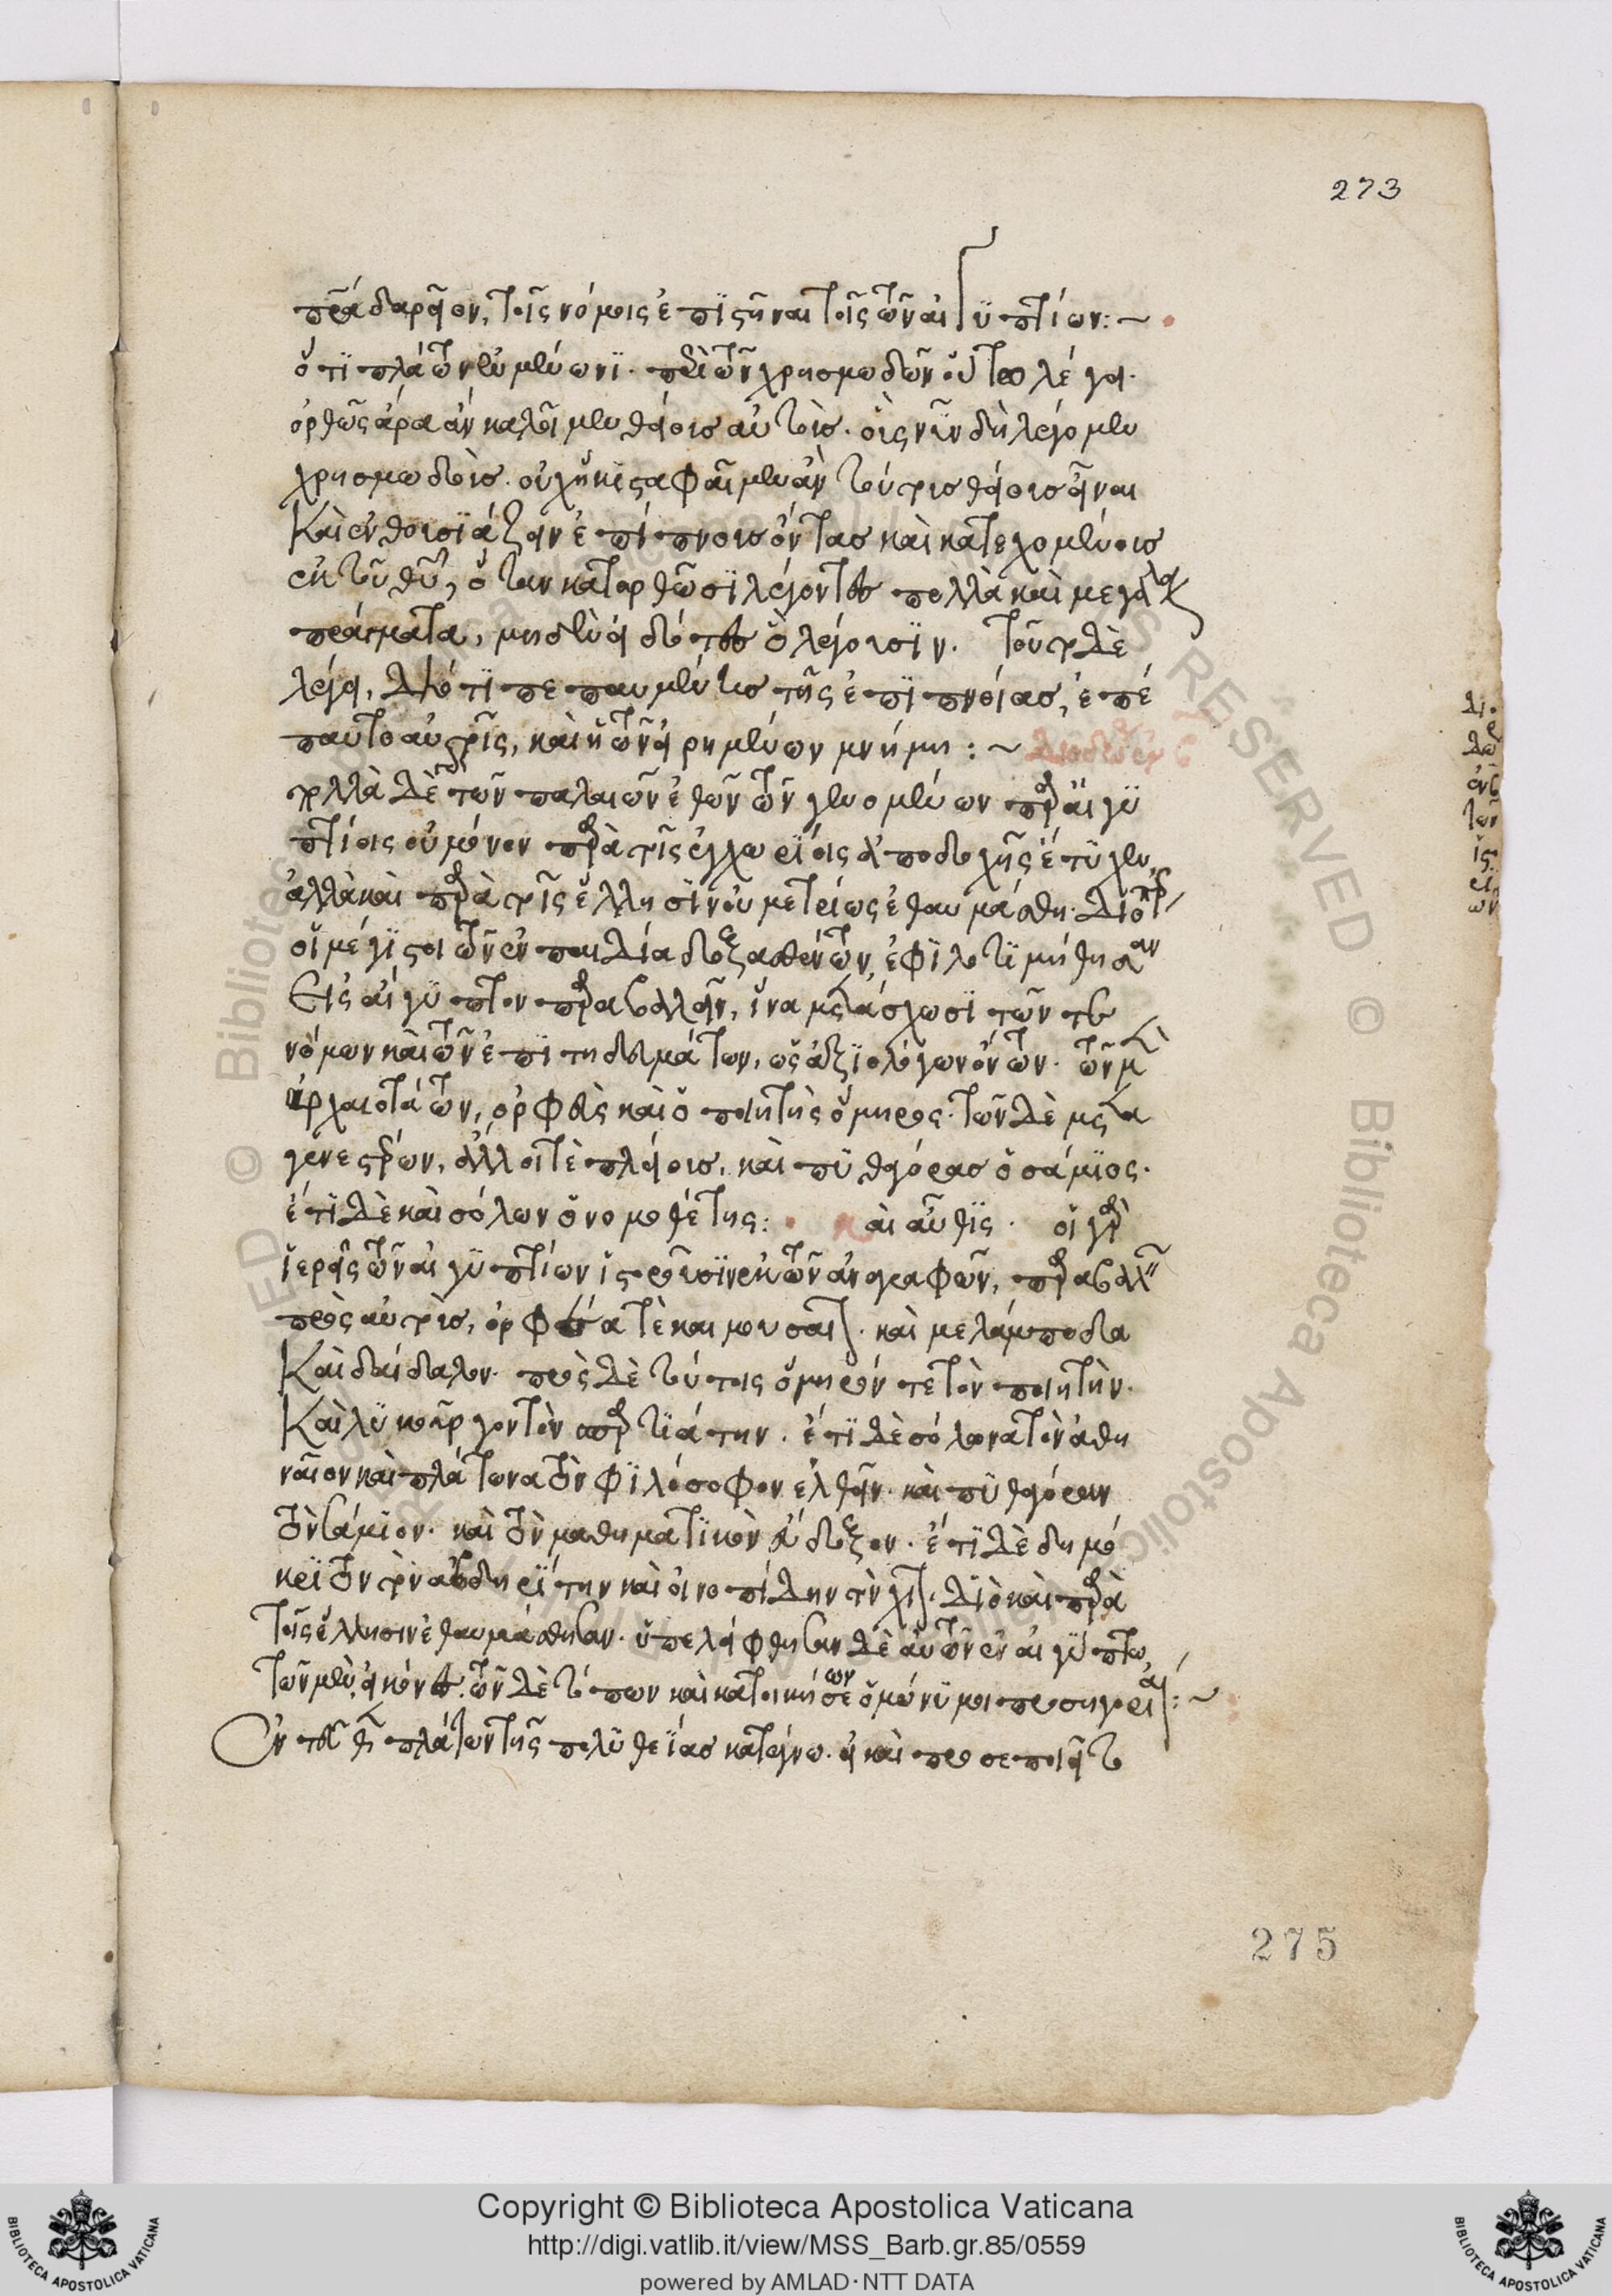 273
πρᾶ δαρεῖον, τοῖς νόμοις ἐπιστῆναι τοῖς τῶν αἰγυπτίων:~
ὅτι πλάτων ἐν μένωνι. περὶ τῶν χρησμωδῶν οὕτω λέγει.
ὀρθῶς ἄρα ἂν καλοῖμεν θείους αὐτοὺς. οὓς νῦν δὴ λέγομεν
χρησμωδοὺς. οὐχ ἥκιστα φαῖμεν ἂν τούτους θείους εἶναι
Καὶ ἐνθουσιάζειν ἐπίπνους ὄντας καὶ κατεχομένους
ἐκ τοῦ θῦ, ὅταν κατορθῶσι λέγοντες πολλὰ καὶ μεγάλα
πράγματα, μηδὲν εἰδότες ὧ λέγουσιν. τοῦτο δὲ
λέγει, διότι πεπαυμένης τῆς ἐπιπνοίας, ἐπέ
παυτο αὐτοῖς, καὶ ἡ τῶν εἰρημένων μνήμη:~
πολλὰ δὲ τῶν παλαιῶν ἐθῶν τῶν γενομένων παρ' αἰγυ
πτίοις οὐ μόνον παρὰ τοῖς ἐγχωρίοις ἀποδοχῆς ἔτυχεν,
ἀλλὰ καὶ παρὰ τοῖς ἕλλησιν οὐ μετρίως ἐθαυμάσθη. διόπερ
οἱ μέγιστοι τῶν ἐν παιδεία δοξασθέντων, ἐφιλοτιμήθησαν
Εἰς αἴγυπτον παραβαλλεῖν, ἵνα μετάσχωσι τῶν τε
νόμων καὶ τῶν ἐπιτηδευμάτων, ὡς ἀξιολόγων ὄντων. τῶν μὲν
ἀρχαιοτάτων, ὀρφεὺς καὶ ὁ ποιητὴς ὅμηρος. τῶν δὲ μετα
γενεστέρων, ἄλλοι τὲ πλείους, καὶ πυθαγόρας ὁ σάμιος.
ἔτι δὲ καὶ σόλων ὁ νομοθέτης: αὶ αὖθις. οἱ γὰρ
ἱερεῖς τῶν αἰγυπτίων ἱστοροῦσιν ἐκ τῶν ἀναγραφῶν, παραβαλεῖν
πρὸς αὐτοὺς, ὀρφέα τὲ καὶ μουσαῖον. καὶ μελάμποδα
Καὶ δαίδαλον. πρὸς δὲ τούτοις ὅμηρόν τε τὸν ποιητὴν.
Καὶ λυκοῦργον τὸν σπαρτιάτην. ἔτι δὲ σόλωνα τὸν ἀθη
ναῖον καὶ πλάτωνα τὸν φιλόσοφον ἐλθεῖν. καὶ πυθαγόραν
τὸν σάμιον. καὶ τὸν μαθηματικὸν εὔδοξον. ἔτι δὲ δημό
κριτον τὸν ἀβδηρίτην καὶ οἰνοπίδην τὸν χῖον. διὸ καὶ παρὰ
τοῖς ἕλλησιν ἐθαυμάσθησαν. ὑπελείφθησαν δὲ αὐτῶν ἐν αἰγύπτω,
τῶν μὲν, εἰκόνες. τῶν δὲ τόπων καὶ κατοικήσεων ὁμώνυμοι προσηγορίαι:~
Ὅν τε θν πλάτων τῆς πολυθεΐας κατέγνω. εἰ καὶ προσεποιεῖτο
275
Copyright © Biblioteca Apostolica Vaticana
http://digi.vatlib.it/view/MSS_Barb.gr.85/0559
powered by AMLAD·NTT DATA